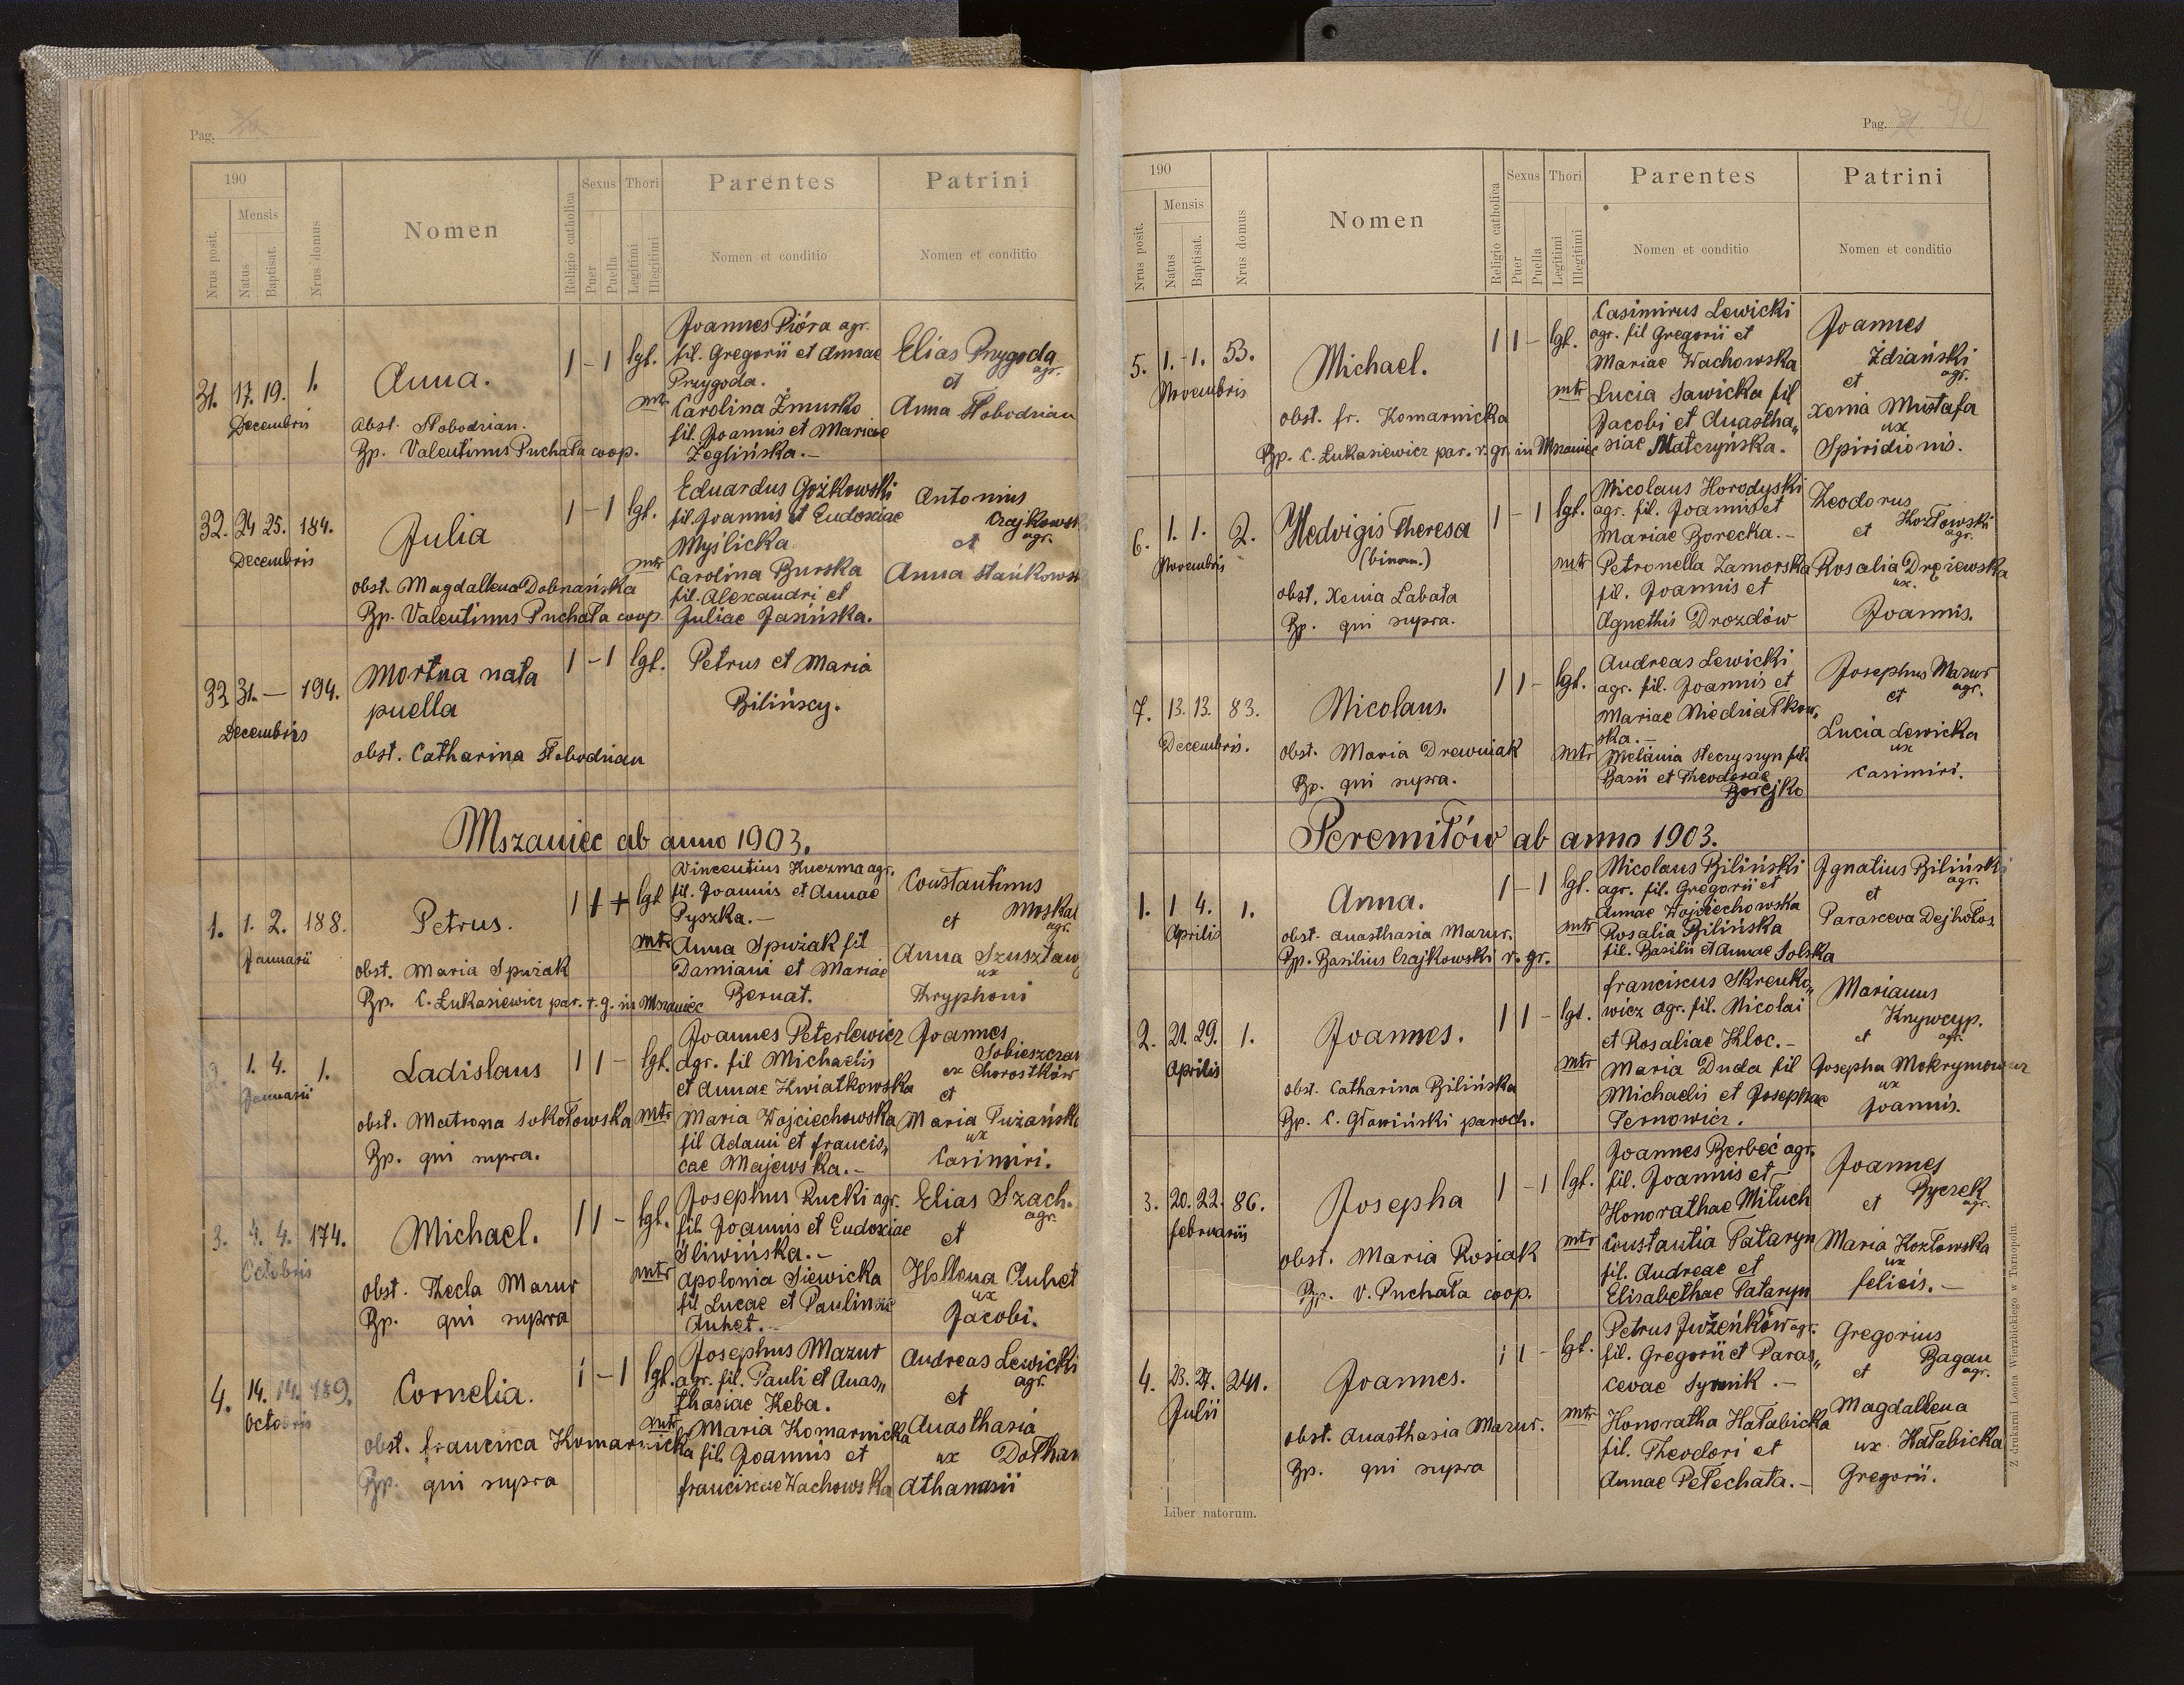 Pag.
190
Nrus posit.
Mensis
Natus
Baptisat.
Nrus domus
Nomen
Religio catholica
Sexus
Puer
Puella
Thori
Legitimi
Illegitimi
Parentes
Nomen et conditio
Patrini
Nomen et conditio
31. 17. 19. 1.
Decembris
Anna.
obst. Słobodzian.
Bp. Valentinus Puchała coop.
1 - 1 lgt.
Joannes Pióra agr.
fil. Gregorii et Annae
Przygoda.
mtr. Carolina Żmurko
fil. Joannis et Mariae
Żeglińska.-
Elias Przygoda
agr.
et
Anna Słobodzian
32. 24 25. 184.
Decembris
Julia
obst. Magdallena Dobrzańska
Bp. Valentinus Puchała coop.
1 - 1 lgt.
Eduardus Gożkowski
fil. Joannis et Eudoxiae
Myślicka
mtr Carolina Burska
fil. Alexandri et
Juliae Jasińska.
Antonius
Czajkowsk
agr.
et
Anna Stańkowsk
33 31. — 194.
Decembris
Mortua nata
puella
obst. Catharina Słobodzian
1 - 1 lgt.
Petrus et Maria
Bilińscy.
Mszaniec ab anno 1903.
1. 1. 2. 188.
Januarii
Petrus.
obst. Maria Spiżak
Bp. C. Łukasiewicz par. r. g. in Mszaniec
1 1 + lgt
Vincentius Kuczma agr.
fil. Joannis et Annae
Pyszka.-
mtr Anna Spiżak fil
Damiani et Mariae
Bernat.
Constantinus
Moskal
agr.
et
Anna Szusztaw
ux
Thryphoni
2. 1. 4. 1.
Januarii
Ladislaus
obst. Matrona Sokołowska
Bp. qui supra.
1 1 - lgt.
Joannes Peterlewicz
agr. fil Michaelis
et Annae Kwiatkowska
mtr Maria Wojciechowska
fil Adami et Francis„
cae Majewska.-
Joannes
Sobieszczan
ex Chorostków
et
Maria Puzańsk
ux
Casimiri.
3. 4. 4. 174.
Octobris
Michael.
obst. Thecla Mazur
Bp. qui supra
1 1 - lgt.
Josephus Rucki agr.
fil. Joannis et Eudoxiae
Śliwińska.-
mtr Apolonia Siewicka
fil Lucae et Paulinae
Auhet.-
Elias Szach.
agr.
et
Hellena Auhet
ux
Jacobi.
4. 14. 14. 189.
Octobris
Cornelia.
obst. Francisca Komarnicka
Bp. qui supra
1 - 1 lgt.
Josephus Mazur
agr. fil. Pauli et Anas„
thasiae Keba.
mtr. Maria Komarnicka
fil. Joannis et
Franciscae Wachowska
Andreas Lewicki
agr.
et
Anasthasia
ux Dołhan
Athanasii
Pag. 90
190
Nrus posit.
Mensis
Natus
Baptisat.
Nrus domus
Nomen
Religio catholica
Sexus
Puer
Puella
Thori
Legitimi
Illegitimi
Parentes
Nomen et conditio
Patrini
Nomen et conditio
5. 1. - 1. 53.
Novembris
Michael.
obst. fr. Komarnicka
Bp. C. Łukasiewicz par. r. gr. in Mszaniec
1 1 - lgt.
Casimirus Lewicki
agr. fil Gregorii et
Mariae Wachowska
mtr Lucia Sawicka fil
Jacobi et Anastha„
siae Matczyńska.
Joannes
Zdiański
agr.
et
Xenia Mustafa
ux
Spiridionis.
6. 1. 1. 2.
Novembris
Hedvigis Theresa
(binom.)
obst. Xenia Labata
Bp. qui supra.
1 - 1 lgt.
Micolaus Horodyski
agr. fil. Joannis et
Mariae Borecka.-
mtr Petronella Zamorska
fil. Joannis et
Agnethis Drozdów
Theodorus
Kozłowski
agr.
et
Rosalia Dręziewska
ux.
Joannis.
7. 13. 13. 83.
Decembris.
Micolaus.
obst. Maria Drewniak
Bp. qui supra.
1 1 - lgt.
Andreas Lewicki
agr. fil. Joannis et
Mariae Niedziałkow„
ska.-
mtr Melania Steczyszyn fil.
Basii et Theodorae
Borejko
Josephus Mazur
agr.
et
Lucia Lewicka
ux
Casimiri.
Peremiłów ab anno 1903.
1. 1 4. 1.
Aprilis
Anna.
obst. Anasthasia Mazur.
Bp. Basilius Czajkowski r. gr.
1 - 1 lgt.
Micolaus Biliński
agr. fil. Gregorii et
Annae Wojciechowska
mtr Rosalia Bilińska
fil. Basilii et Annae Solska
Ignatius Biliński
agr.
et
Parasceva Dejhołos.
2. 21. 29. 1.
Aprilis
Joannes.
obst. Catharina Bilińska
Bp. C. Głowiński paroch.
1 1 - lgt.
Franciscus Skrenko„
wicz agr. fil. Nicolai
et Rosaliae Kloc.-
mtr Maria Duda fil
Michaelis et Josephae
Ternowicz.
Marianus
Knywcyp.
agr.
et
Josepha Mokrymowicz
ux
Joannis.
3. 20. 22. 86.
Februarii
Josepha
obst. Maria Rosiak
Bp. V. Puchała coop.
1 - 1 lgt.
Joannes Berbeć agr.
fil. Joannis et
Honorathae Miłuch
mtr Constantia Tataryn
fil. Andreae et
Elisabethae Tataryn
Joannes
Byczek
agr.
et
Maria Kozłowska
ux
Felicis.-
4. 23. 27. 241.
Julii
Joannes.
obst. Anasthasia Mazur.
Bp. qui supra
1 1 - lgt.
Petrus Jużeńków agr.
fil. Gregorii et Paras„
cevae Symik.-
mtr Honoratha Hałabicka
fil. Theodori et
Annae Pełechata.-
Gregorius
Bagan
agr.
et
Magdallena
ux. Hałabicka
Gregorii.
Liber natorum.
Z drukarni Leona Wierzbickiego w Tarnopolu.